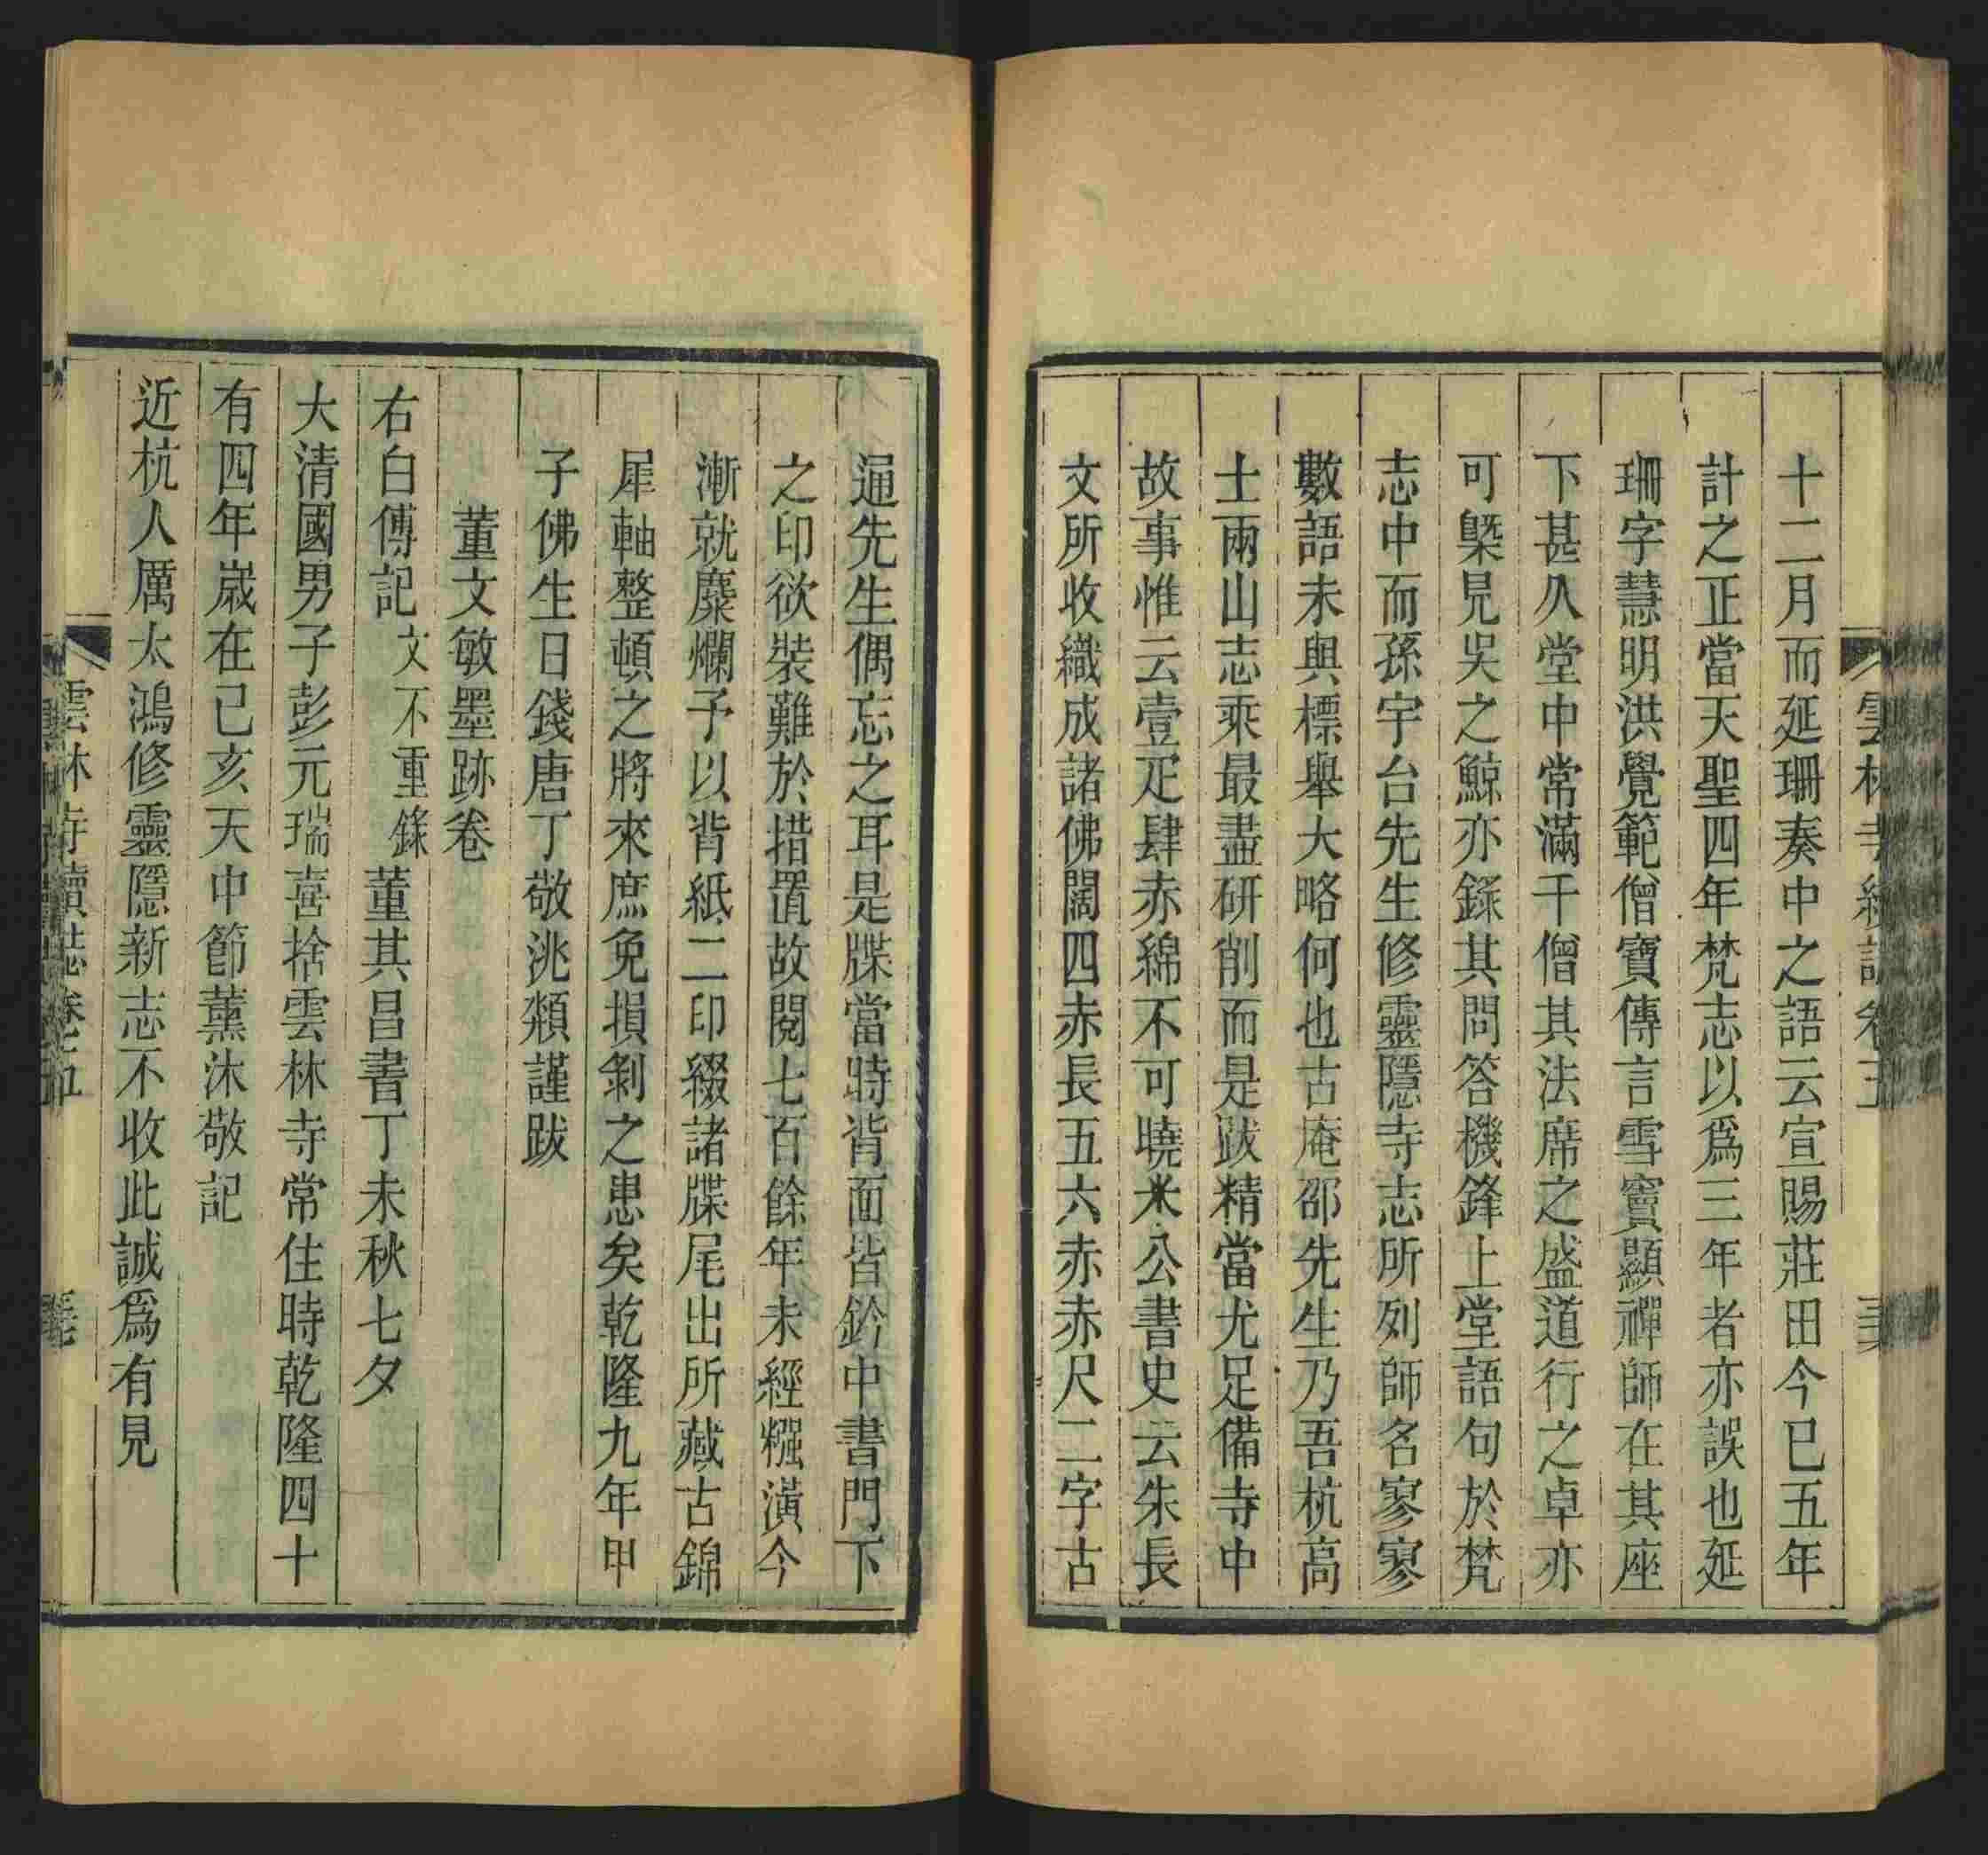 十二月而延珊奏中之語云宣賜莊田今已五年
計之正當天聖四年梵志以爲三年者亦誤也延
珊字慧明洪覺範僧寶傳言雪竇顯禪師在其座
下甚久堂中常滿千僧其法席之盛道行之卓亦
可槩見吳之鯨亦錄其問答機鋒上堂語句於梵
志中而孫宇台先生修靈隱寺志所列師名寥寥
數語未與標舉大略何也古庵邵先生乃吾杭高
士兩山志乘最盡研削而是跋精當尤足備寺中
故事惟云壹疋肆赤綿不可曉米公書史云朱長
文所收織成諸佛闊四赤長五六赤赤尺二字古
通先生偶忘之耳是牒當時背面皆鈐中書門下
之印欲裝難於措置故閱七百餘年未經糨潢今
漸就麋爛予以背紙二印綴諸牒尾出所藏古錦
犀軸整頓之將來庶免損剝之患矣乾隆九年甲
子佛生日錢唐丁敬洮頮謹跋
董文敏墨跡卷
右白傅記文不重錄董其昌書丁未秋七夕
大清國男子彭元瑞喜捨雲林寺常住時乾隆四十
有四年嵗在己亥天中節薰沐敬記
近杭人厲太鴻修靈隱新志不收此誠爲有見
雲林寺續誌卷之五